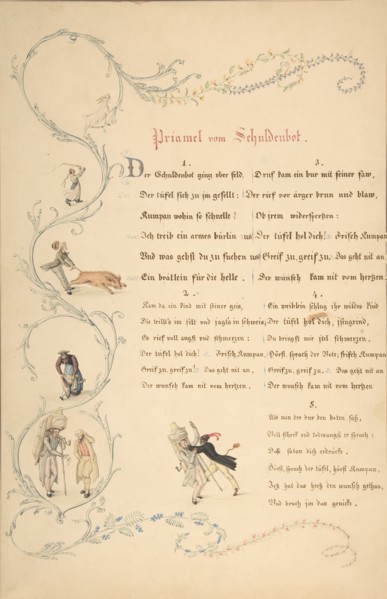 Priamel vom Schuldenbot.
1.
Der Schuldenbot ging ober feld,
Der tüfel sich zu im gesellt:
Kumpan wohin so schnelle!
Ich treib ein armes bürlin us
Und was gehst du zu suchen us
Ein brätlein für die helle.
2.
Kam da ein kind mit seiner geis,
Die wollt's im
Es rief voll angst und schmerzen:
Der tüfel hol dich! Frisch, Kumpan,
Greif zu, greif zu! Das geht nit an,
Der wunsch kam nit vom hertzen.
3.
Druf kam ein bur mit seiner saw,
Der rief vor ärger brun und blaw,
Ob irem
Der tüfel hol dich! Frisch Kumpan
Greif zu, greif zu. Das geht nit an
Der wunsch kam nit vom hertzen.
4.
Ein weiblein schlug ihr wildes kind
Der tüfel hol dich,
Du bringst mir schmerzen.
Hörst, sprach der Bote, frisch Kumpan
Greif zu, greif zu. Das geht nit an
Der wunsch kam nit vom hertzen
5.
Als nun der bur den boten sah,
Voll schreck und er sprach:
Daß satan dich erdrück.
Hörst, sprach der tüfel, hörst Kumpan,
Der hat das hertz den wunsch gethan,
Und brach im das genick.